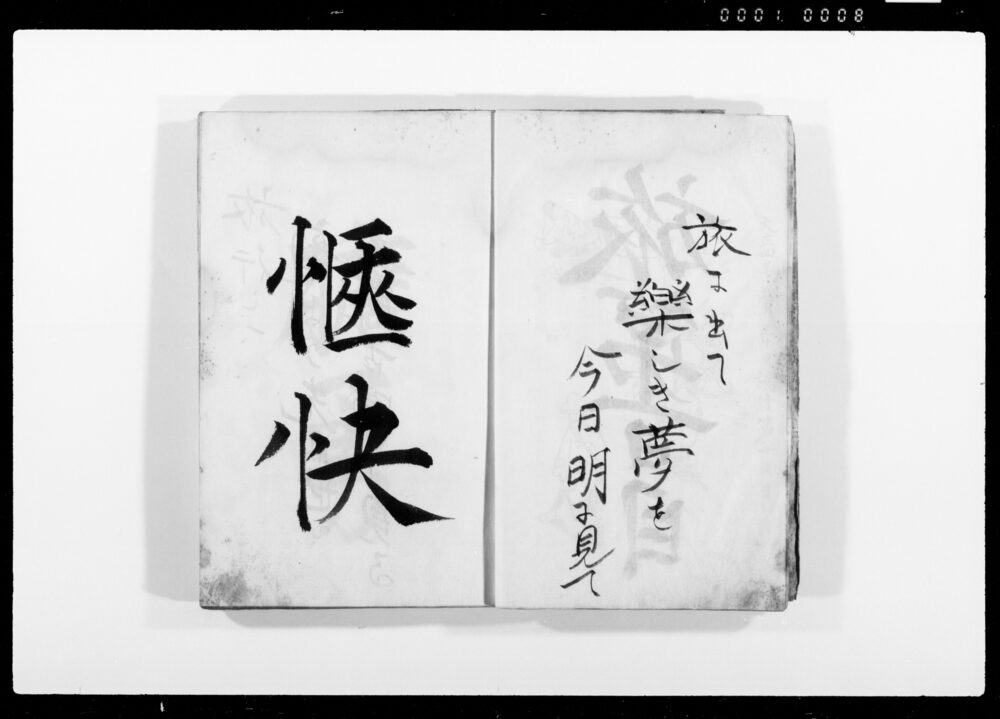 0001. 0008
旅に出て
樂しき夢を
今日明に見て
愜
快